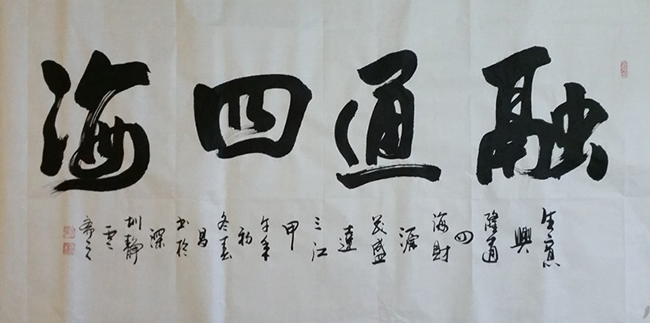 融通四海
生意
興
隆通
四
海財
源
茂盛
達
三江
甲
午年
初
冬春
昌
书於
深
圳靜
雲